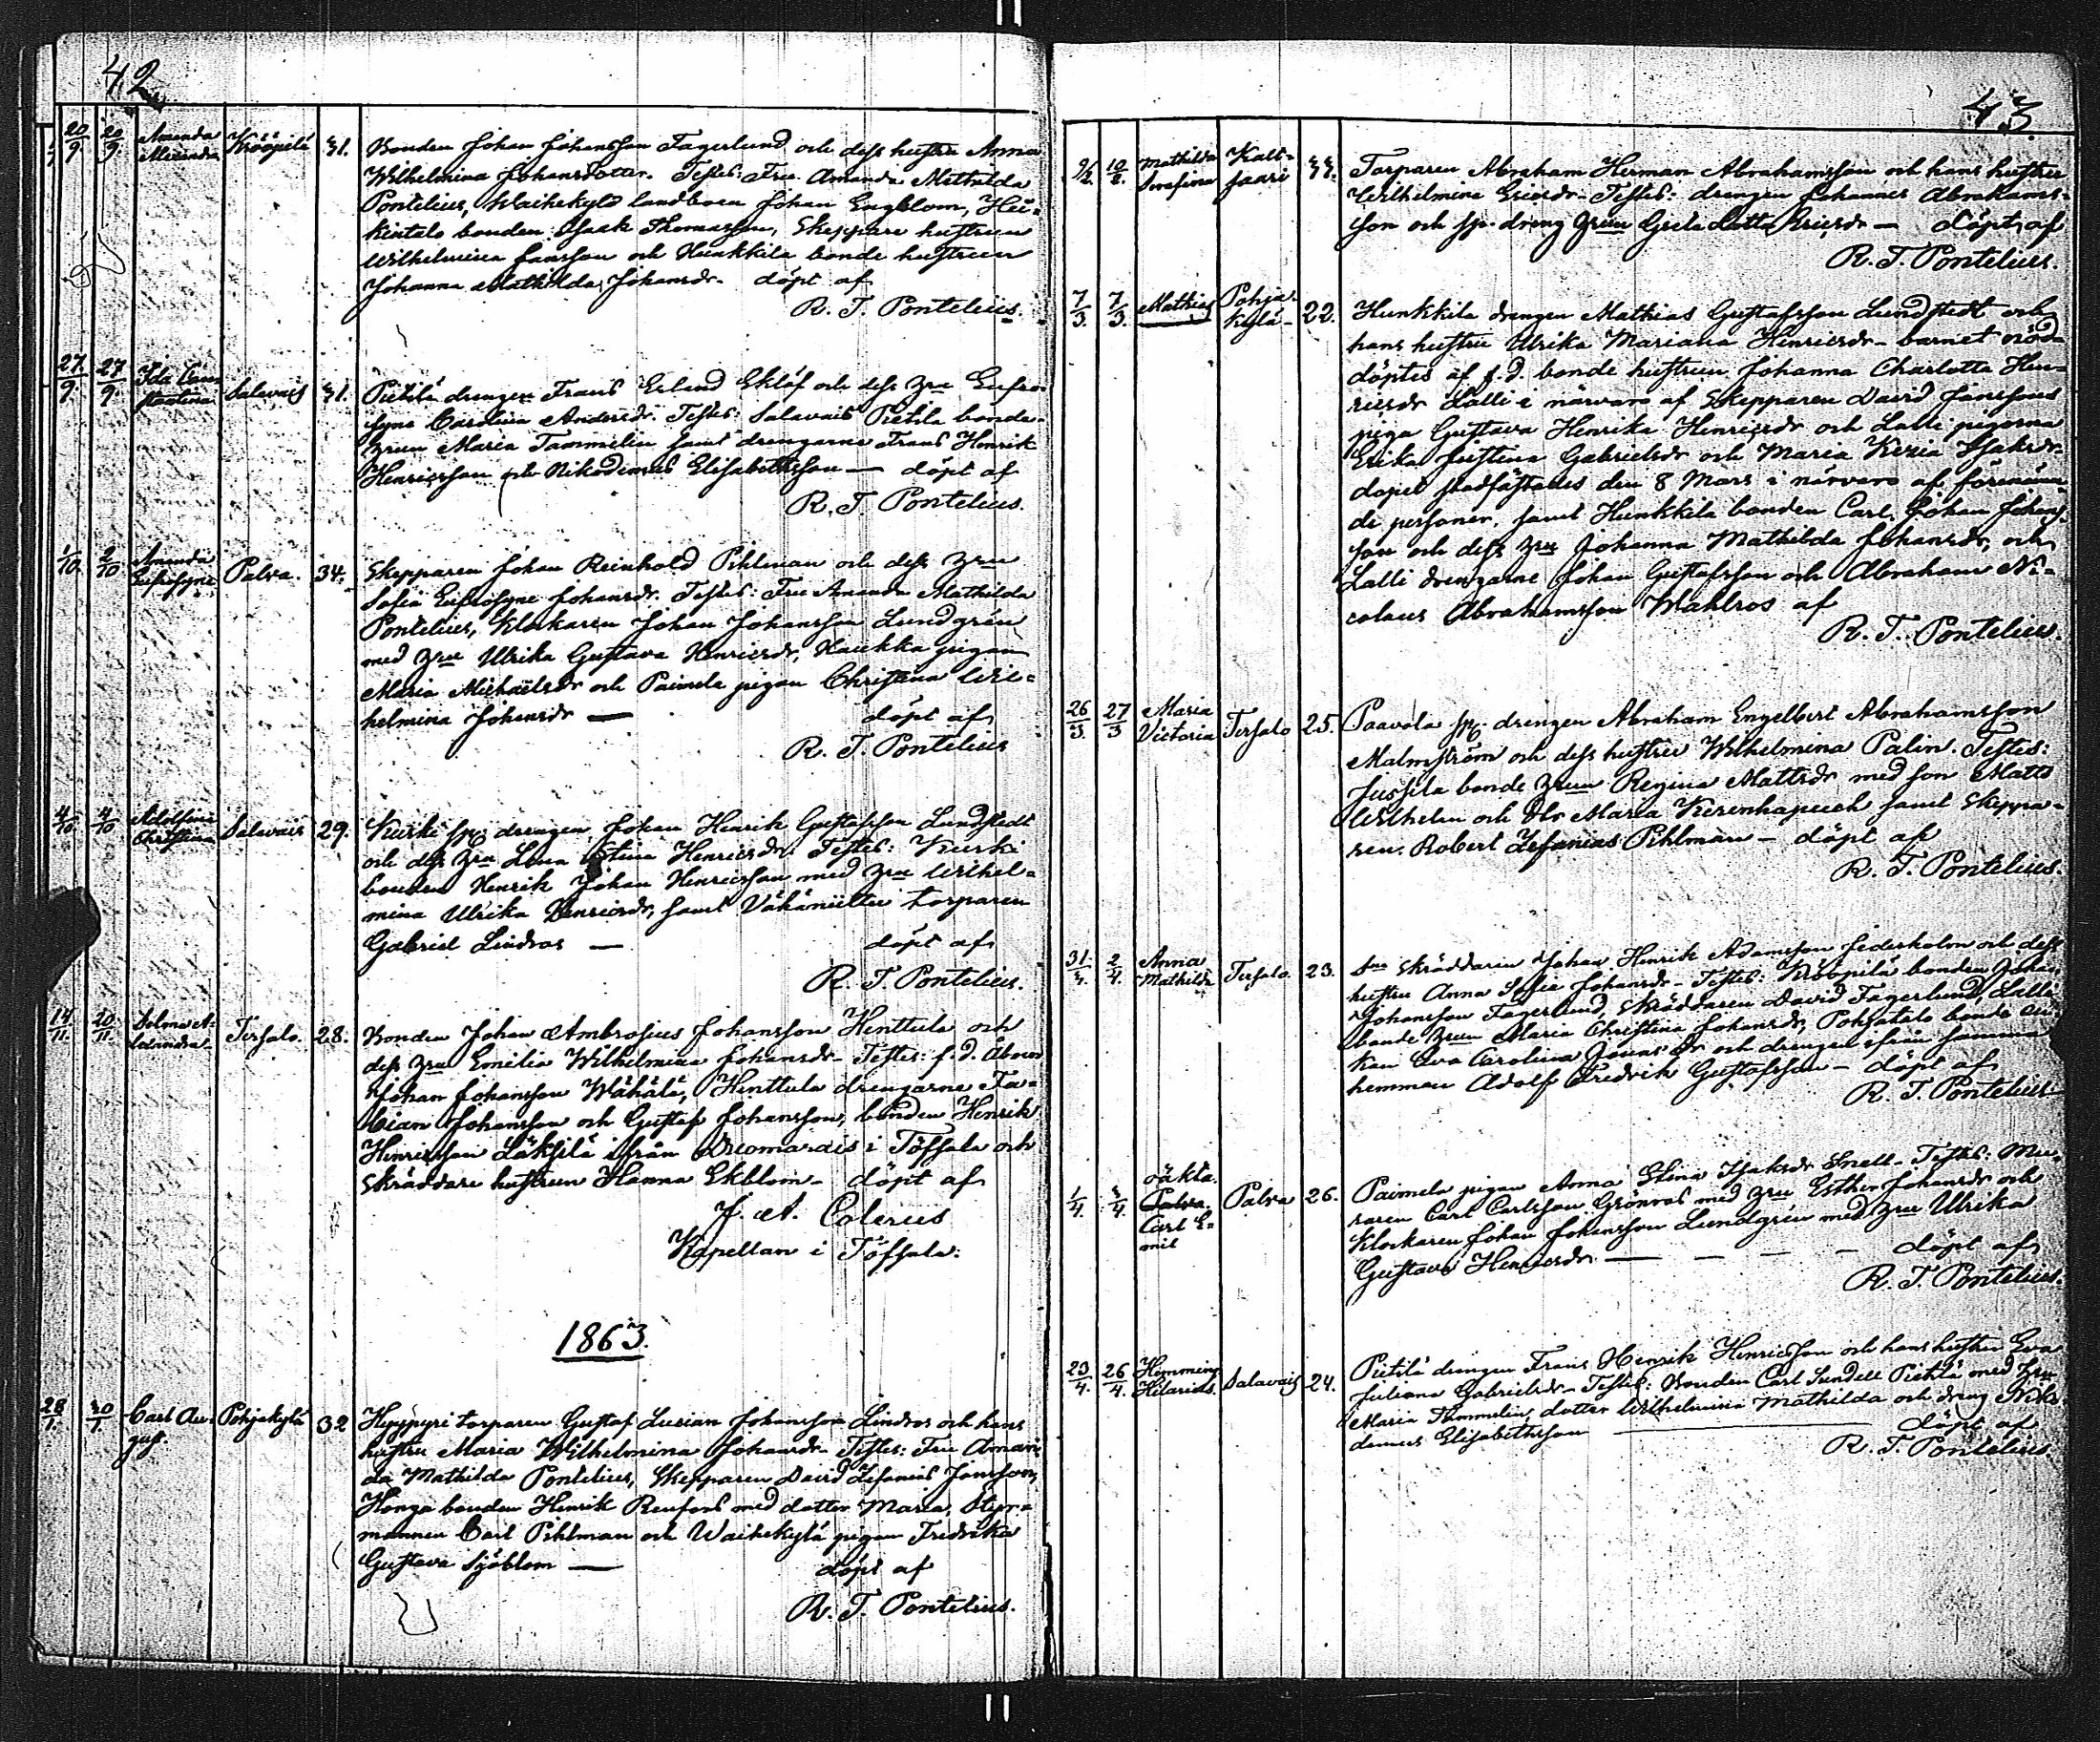 42
20/9 20/9 Amanda Krööpilä 31. Bonden Johan Johansson Fagerlund och dess hustru Anna
Alexandra Wilhelmina Johansdotter. Testes: Fru Amanda Mathilda
Pontelius, Waihekylä landboen Johan Engblom, Hei-
kintalo bonden Isaak Thomasson, Skeppare hustrun
Wilhelmina Jansson och Hunkkila bonde hustrun
Johanna Mathilda Johansdr. döpt af
R. T. Pontelius.
27/9 27/9 Ida Con- Salavais 31. Pietilä drengen Frans Erland Eklöf och dess Hru Eufro-
stantina syne Carolina Andersdr. Testes: Salavais Pietilä bonde
Hrun Maria Tammelin samt drengarne Frans Henrik
Henricsson och Nikodemus Elisabethsson — döpt af
R. T. Pontelius.
1/10 2/10 Amanda Palva. 34. Skepparen Johan Reinhold Pihlman och dess Hru
Eufrosyne Sofia Eufrosyne Johansdr. Testes: Fru Amanda Mathilda
Pontelius, Klockaren Johan Johansson Lundgrén
med Hru Ulrika Gustava Henricsdr, Haukka pigan
Maria Michaelsdr och Paimela pigan Christina Wil-
helmina Johansdr — döpt af
R. T. Pontelius
4/10 4/10 Adolfina Salavais 29. Kurki sp. drengen Johan Henrik Gustafsson Lundstedt
Christina och dess Hru Lena Stina Henricsdr. Testes: Kurki
bonden Henrik Johan Henricsson med Hru Wilhel-
mina Ulrika Henricsdr, samt Vähäniittu torparen
Gabriel Lindros — döpt af
R. T. Pontelius.
14/11. 20/11. Selma A- Tersalo. 28. Bonden Johan Ambrosius Johansson Henttula och
lexandra dess Hru Emilia Wilhelmina Johansdr. Testes: f. d. Åboen
Johan Johansson Wähälä, Henttula drengarne Fa-
bian Johansson och Gustaf Johansson, bonden Henrik
Henricsson Läksilä ifrån Wuomarais i Töfsala och
Skräddare hustrun Hanna Ekblom — döpt af
J. A. Colerus
Kapellan i Töfsala.
1863.
28/1. 30/1 Carl Au- Pohjakylä 32 Hyypyri torparen Gustaf Lucian Johansson Lindros och hans
gust. hustru Maria Wilhelmina Johansdr. Testes: Fru Aman-
da Mathilda Pontelius, Skepparen David Zefanias Jansson,
Honga bonden Henrik Renfors med dotter Maria, Styr-
mannen Carl Pihlman och Waihekylä pigan Fredrika
Gustava Sjöblom — döpt af
R. T. Pontelius.
43.
9/2. 10/2. Mathilda Kalt- 33. Torparen Abraham Herman Abrahamsson och hans hustru
Serafina saari Wilhelmina Ericsdr. Testes: drengen Johannes Abrahams-
son och sp. dreng Hrun Greta Lotta Ericsdr — döpt af
R. T. Pontelius.
7/3. 7/3. Mathias Pohja- 22. Hunkkila drengen Mathias Gustafsson Lundstedt och
kylä hans hustru Ulrika Mariana Henricsdr — barnet nöd-
döptes af f. d. bonde hustrun Johanna Charlotta Hen-
ricsdr Lalli i närvaro af Skepparen David Janssons
piga Gustava Henrika Henricsdr och Lalli pigorna
Erika Justina Gabrielsdr och Maria Kezia Isaksdr
dopet stadfästades den 8 Mars i närvaro af förenämn-
de personer, samt Hunkkila bonden Carl Johan Johans-
son och dess Hru Johanna Mathilda Johansdr, och
Lalli drengarne Johan Gustafsson och Abraham Ni-
colaus Abrahamsson Wahlros af
R. T. Pontelius.
26/3. 27/3 Maria Tersalo 25. Paavola sp. drengen Abraham Engelbert Abrahamsson
Victoria Malmström och dess hustru Wilhelmina Palin. Testes:
Jussila bonde Hrun Regina Mattsdr med son Matts
Wilhelm och Maria samt Skeppa-
ren Robert Zefanias Pihlman — döpt af
R. T. Pontelius.
31/3. 2/4. Anna Tersalo. 23. Skräddaren Johan Henrik Adamsson Sederholm och dess
Mathilda hustru Anna Sofia Johansdr — Testes: Krööpilä bonden Johan
Johansson Fagerlund, Skräddaren David Fagerlund, Lalli
bonde Hrun Maria Christina Johansdr, Pohjatalo bonde en-
kan Eva Carolina Jonasdr och drengen ifrån samma
hemman Adolf Fredrik Gustafsson — döpt af
R. T. Pontelius
oäkta.
1/4. 3/4. Palva Palva 26. Paimela pigan Anna Stina Isaksdr Snell — Testes: Mu-
Carl E- raren Carl Carlsson Grönroos med Hru Esther Johansdr och
mil Klockaren Johan Johansson Lundgrén med Hru Ulrika
Gustava Henricsdr — — — — döpt af
R. T. Pontelius.
23/4. 26/4. Hemming Salavais 24. Pietilä drengen Frans Henrik Henricsson och hans hustru Eva
Hilarius. Juliana Gabrielsdr — Testes: Bonden Carl Sundell Pietilä med Hru
Maria Tammelin, dotter Wilhelmina Mathilda och dreng Niko-
demus Elisabethsson — döpt af
R. T. Pontelius